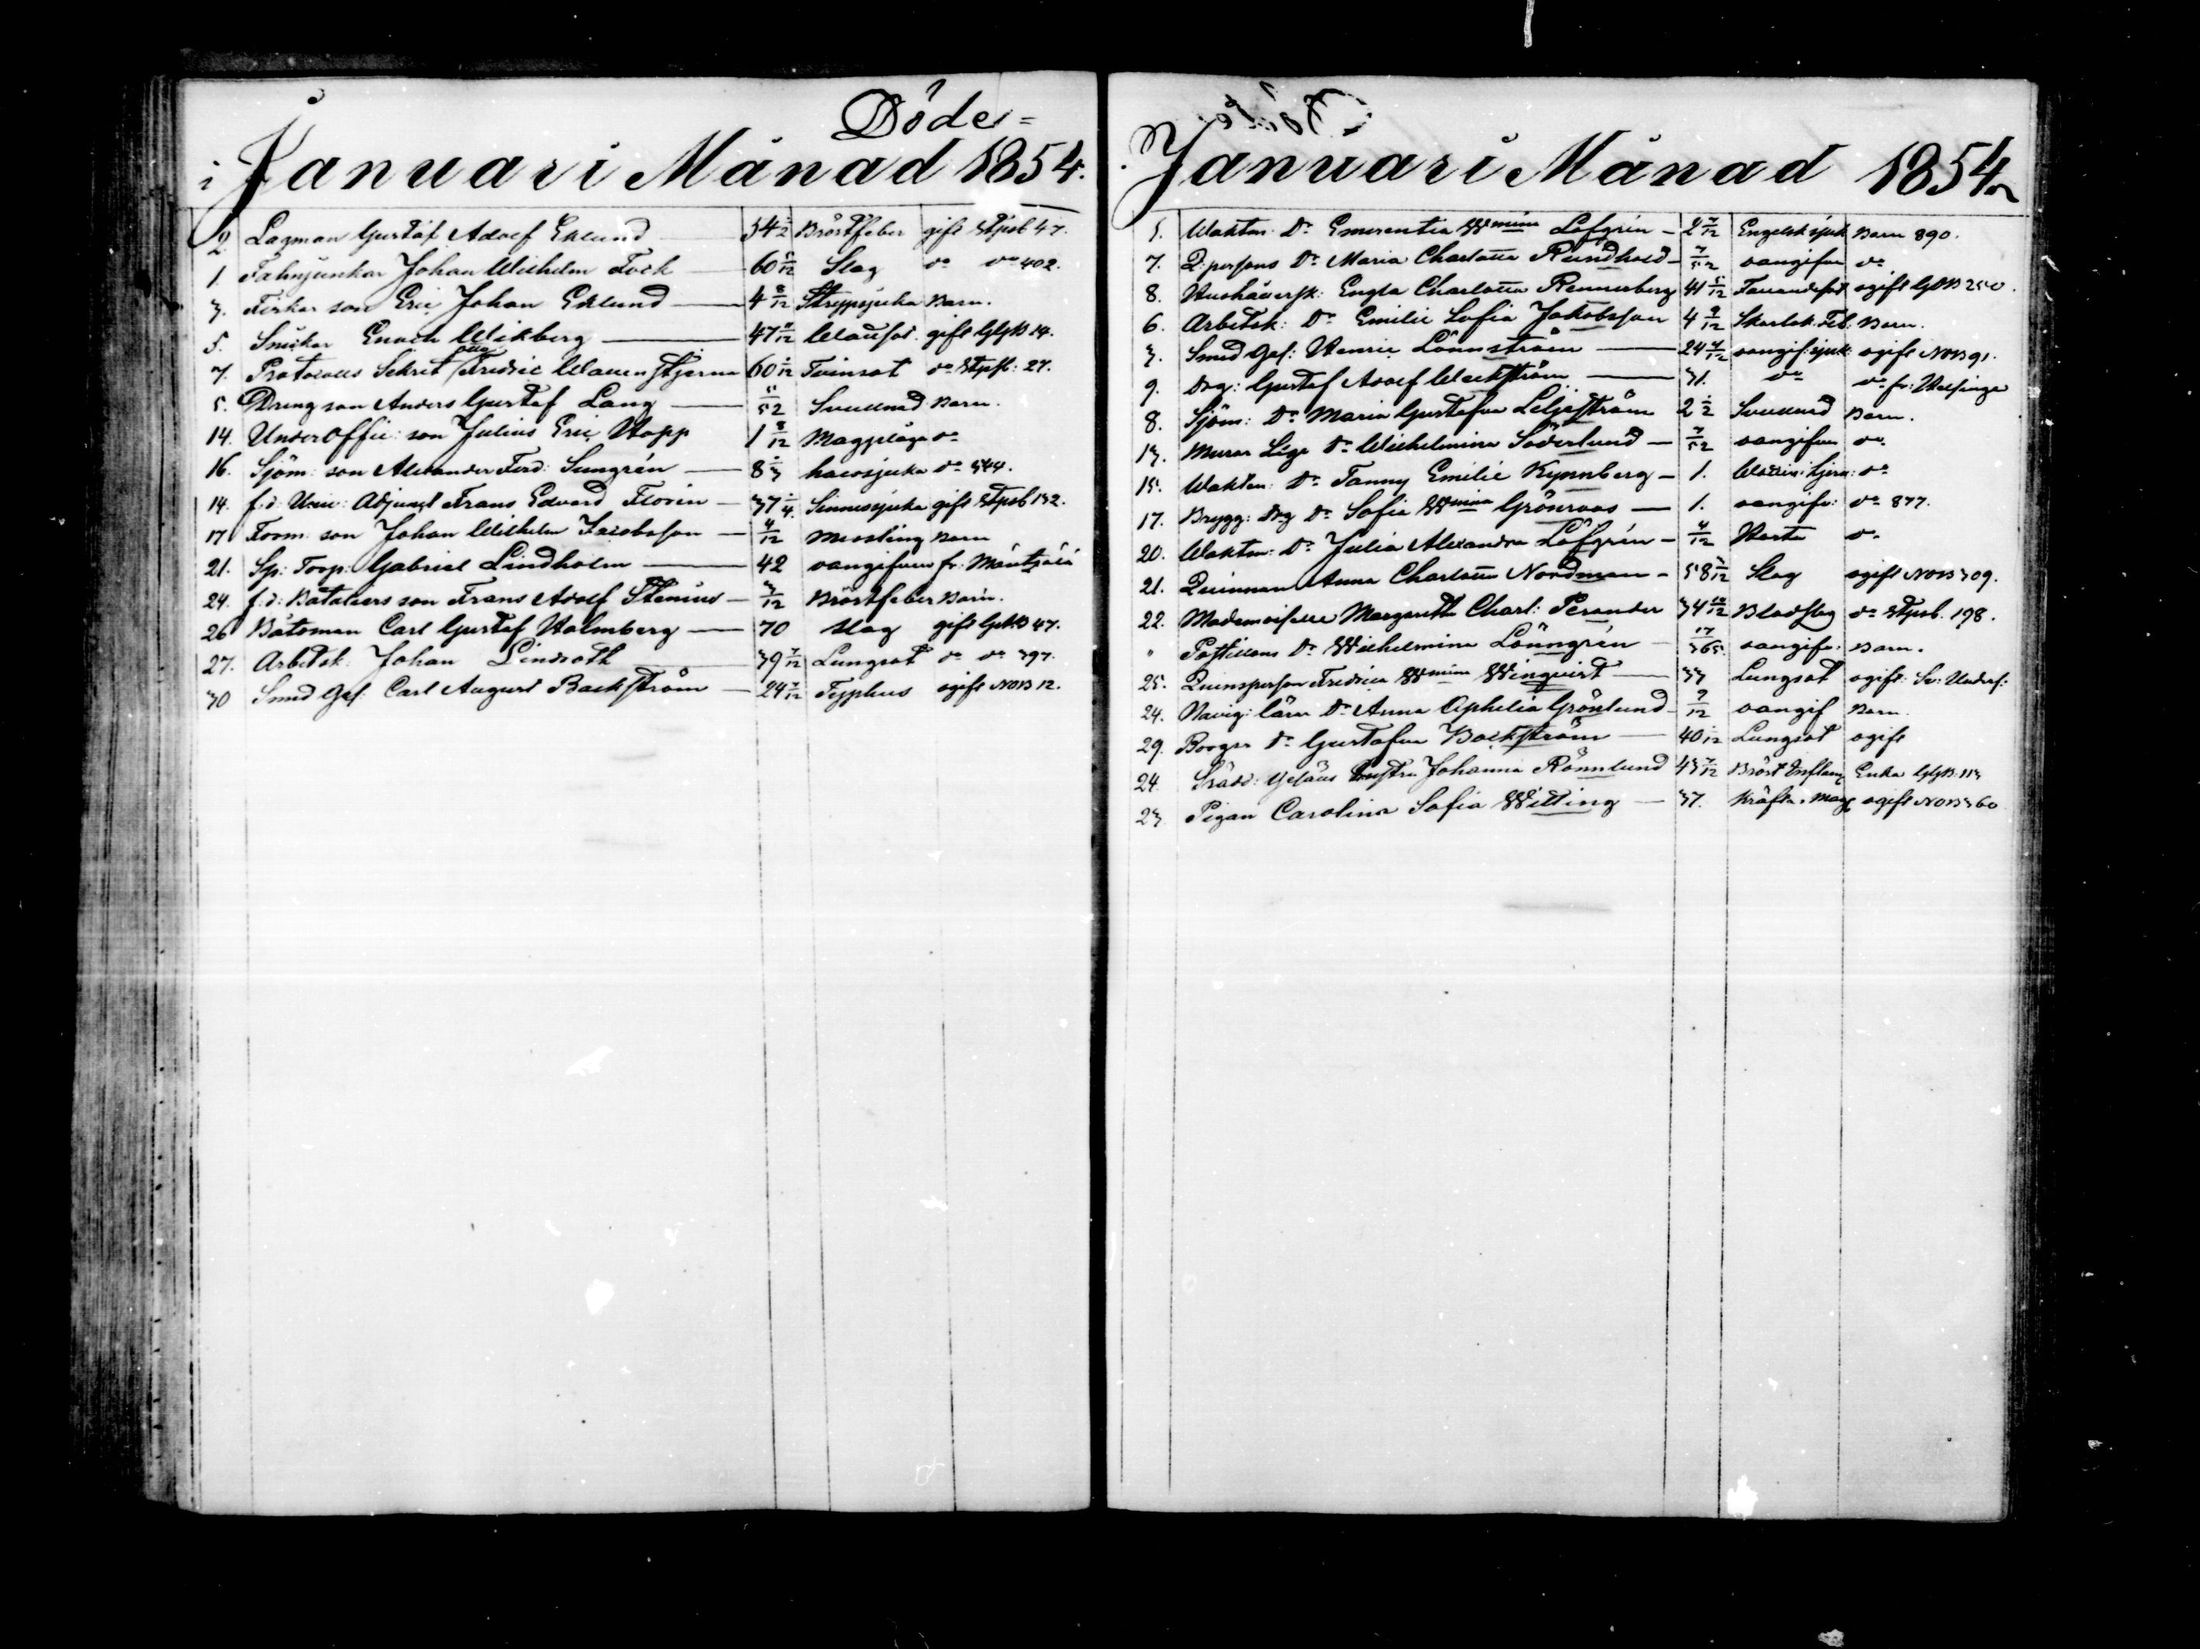 Döde
i Januari Månad 1854.
2. Lagman Gustaf Adolf Eklund 54 1/2 Bröstfeber gift Stsb 47.
1. Fahnjunkar Johan Wilhelm Fock 60 5/12 Slag do do 402.
3. Fiskar son Eric Johan Eklund 4 8/12 Strypsjuka Barn.
5. Snickar Enoch Wikberg 47 9/12 gift GGB 14.
7. Protocolls Sekret Fredric 60 1/12 Tvinsot do 27.
5. Dreng son Anders Gustaf Lang 11/52 Barn.
14. Underoffic: son Julius Eric Hopp 1 8/12 Magplåga do
16. Sjöm: son Alexander Ferd: Sungrén 8 1/3 halssjuka do 544.
14. f.d. Univ: Adjunct Frans Edvard Florin 37 1/4 Sinnessjuka gift 132.
17 Form: son Johan Wilhelm Jacobsson 4/12 Messling Barn
21. Sp: Torp: Gabriel Lindholm 42 oangifven fr. Mäntsälä
24. f.d. Bataliers son Frans Adolf Stenius 3/12 Bröstfeber Barn.
26 Båtsman Carl Gustaf Holmberg 70 Slag gift GGB 47.
27. Arbetsk: Johan Lindroth 39 7/12 Lungsot do do 397.
30 Smed Ges: Carl August Backström 24 7/12 Typhus ogift NOB 12.
Januari Månad 1854
5. Waktm: Dr Emerentia Wmina Löfgrén 2 7/12 Engelsk sjuk Barn 890.
7. Q: persons Dr Maria Charlotta Rundhold 7/52 oangifven do
8. Hushållersk: Engla Charlotta Rennerberg 41 5/12 ogift GGB 250.
6. Arbetsk: Dr Emilie Sofia Jakobsson 4 9/12 Skarlak: Feb. Barn.
3. Smed Ges: Henric Lönnström 24 7/12 oangif: sjuk: ogift NOB 91.
9. Drg: Gustaf Adolf Weckström 31. do do fr: Helsinge
8. Sjöm: Dr Maria Gustafva Liljeström 2 1/2 Barn.
13. Murar Dr Wilhelmina Söderlund 7/52 oangifven do
15. Waktm: Dr Fanny Emilie Kynnberg 1. do
17. Brygg: drg Dr Sofia Wmina Grönroos 1. oangifv: do 877.
20. Waktm: Dr Julia Alexandra Löfgrén 4/12 Hosta do
21. Quinnan Anna Charlotta Nordman 58 7/12 Slag ogift NOB 309.
22. Mademoiselle Margareth Charl: Perander 34 10/12 Blodslag do Stsb. 198.
" Postillons Dr Wilhelmina Lönngrén 17/365 oangifv: Barn.
25. Quinsperson Fredrica Wmina Winqvist 33 Lungsot ogift:
24. Navig: lärar Dr Anna Ophelia Grönlund 9/12 oangif Barn.
29. Borgar Dr Gustafva Backström 40 1/12 Lungsot ogift
24. Johanna Rönnlund 43 7/12 Bröst Inflam Enka GGB 113
23. Pigan Carolina Sofia Witting 37. Kräfta i Mag: ogift NOB 360